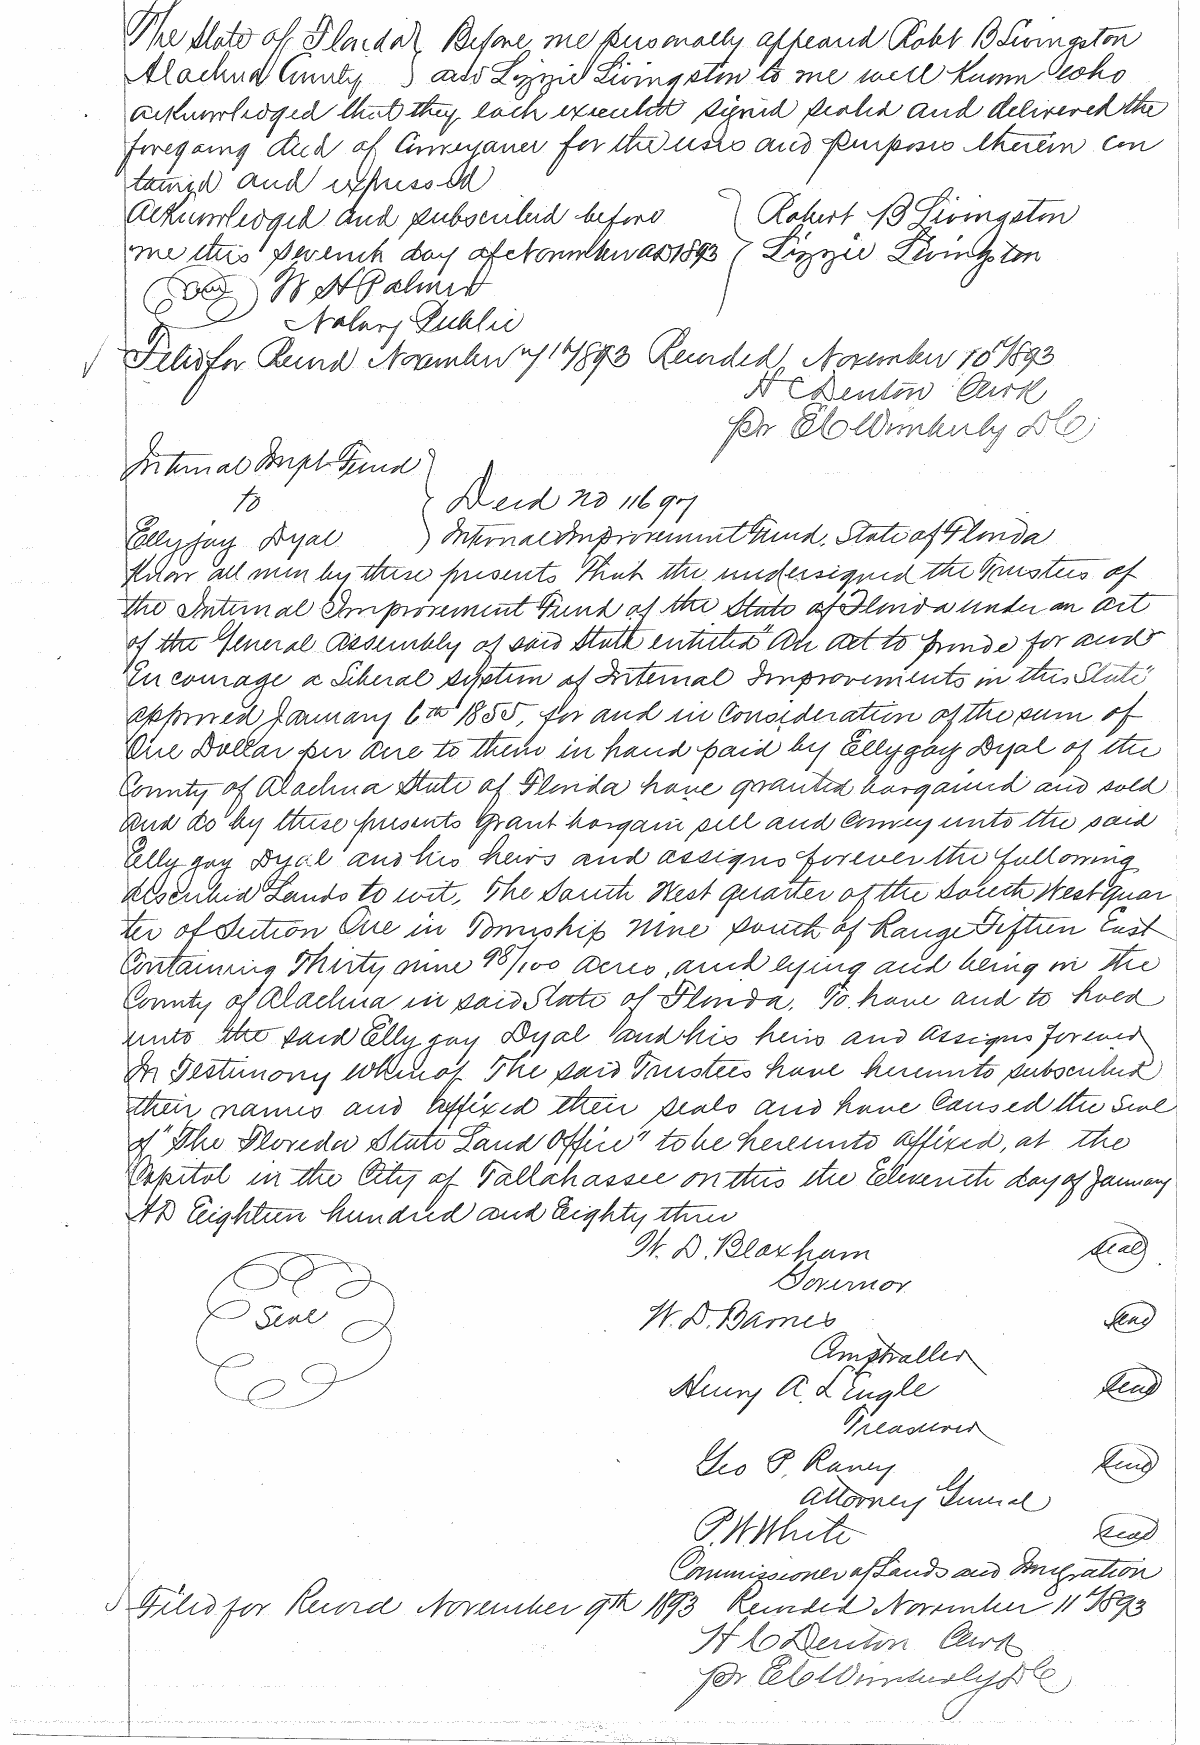 The State of Florida } Before me personally appeared Robt B Livingston
Alachua County } and Lizzie Livingston to me well known who
acknowledged that they each executed signed sealed and delivered the
foregoing deed of Conveyance for the uses and purposes therein con
tained and expressed
Acknowledged and subscribed before } Robert B Livingston
me this seventh day of November AD 1893 } Lizzie Livingston
Seal W H Palmer
Notary Public
Filed for Record November 7th 1893 Recorded November 10th 1893
H C Denton Clerk
pr E C Wimberly D C
Internal Impt. Fund }
to } Deed no 11697
Ellygay Dyal } Internal Improvement Fund. State of Florida
Know all men by these presents That the undersigned the Trustees of
the Internal Improvement Fund of the State of Florida under an act
of the General Assembly of said State entitled "An act to provide for and
Encourage a Liberal system of Internal Improvements in this State"
approved January 6th 1855, for and in Consideration of the sum of
One Dollar per acre to them in hand paid by Ellygay Dyal of the
County of Alachua State of Florida have granted bargained and sold
And do by these presents Grant bargain sell and Convey unto the said
Elly gay Dyal and his heirs and assigns forever the following
described Lands to wit, The South West quarter of the South West quar
ter of Section One in Township nine south of Range Fifteen East
Containing Thirty nine 98/100 acres, and lying and being in the
County of Alachua in said State of Florida. To have and to hold
unto the said Elly gay Dyal and his heirs and Assigns forever
In Testimony whereof The said Trustees have hereunto subscribed
their names and affixed their seals and have Caused the Seal
of "The Florida State Land Office" to be hereunto affixed, at the
Capitol in the City of Tallahassee on this the Eleventh day of January
AD Eighteen hundred and Eighty three
W. D. Bloxham seal
Governor
Seal
W. D. Barnes seal
Comptroller
Henry A. L'Engle seal
Treasurer
Geo P. Raney seal
Attorney General
P. W. White seal
Commissioner of Lands and Imigration
Filed for Record November 9th 1893 Recorded November 11th 1893
H C Denton Clerk
pr E C Wimberly D C